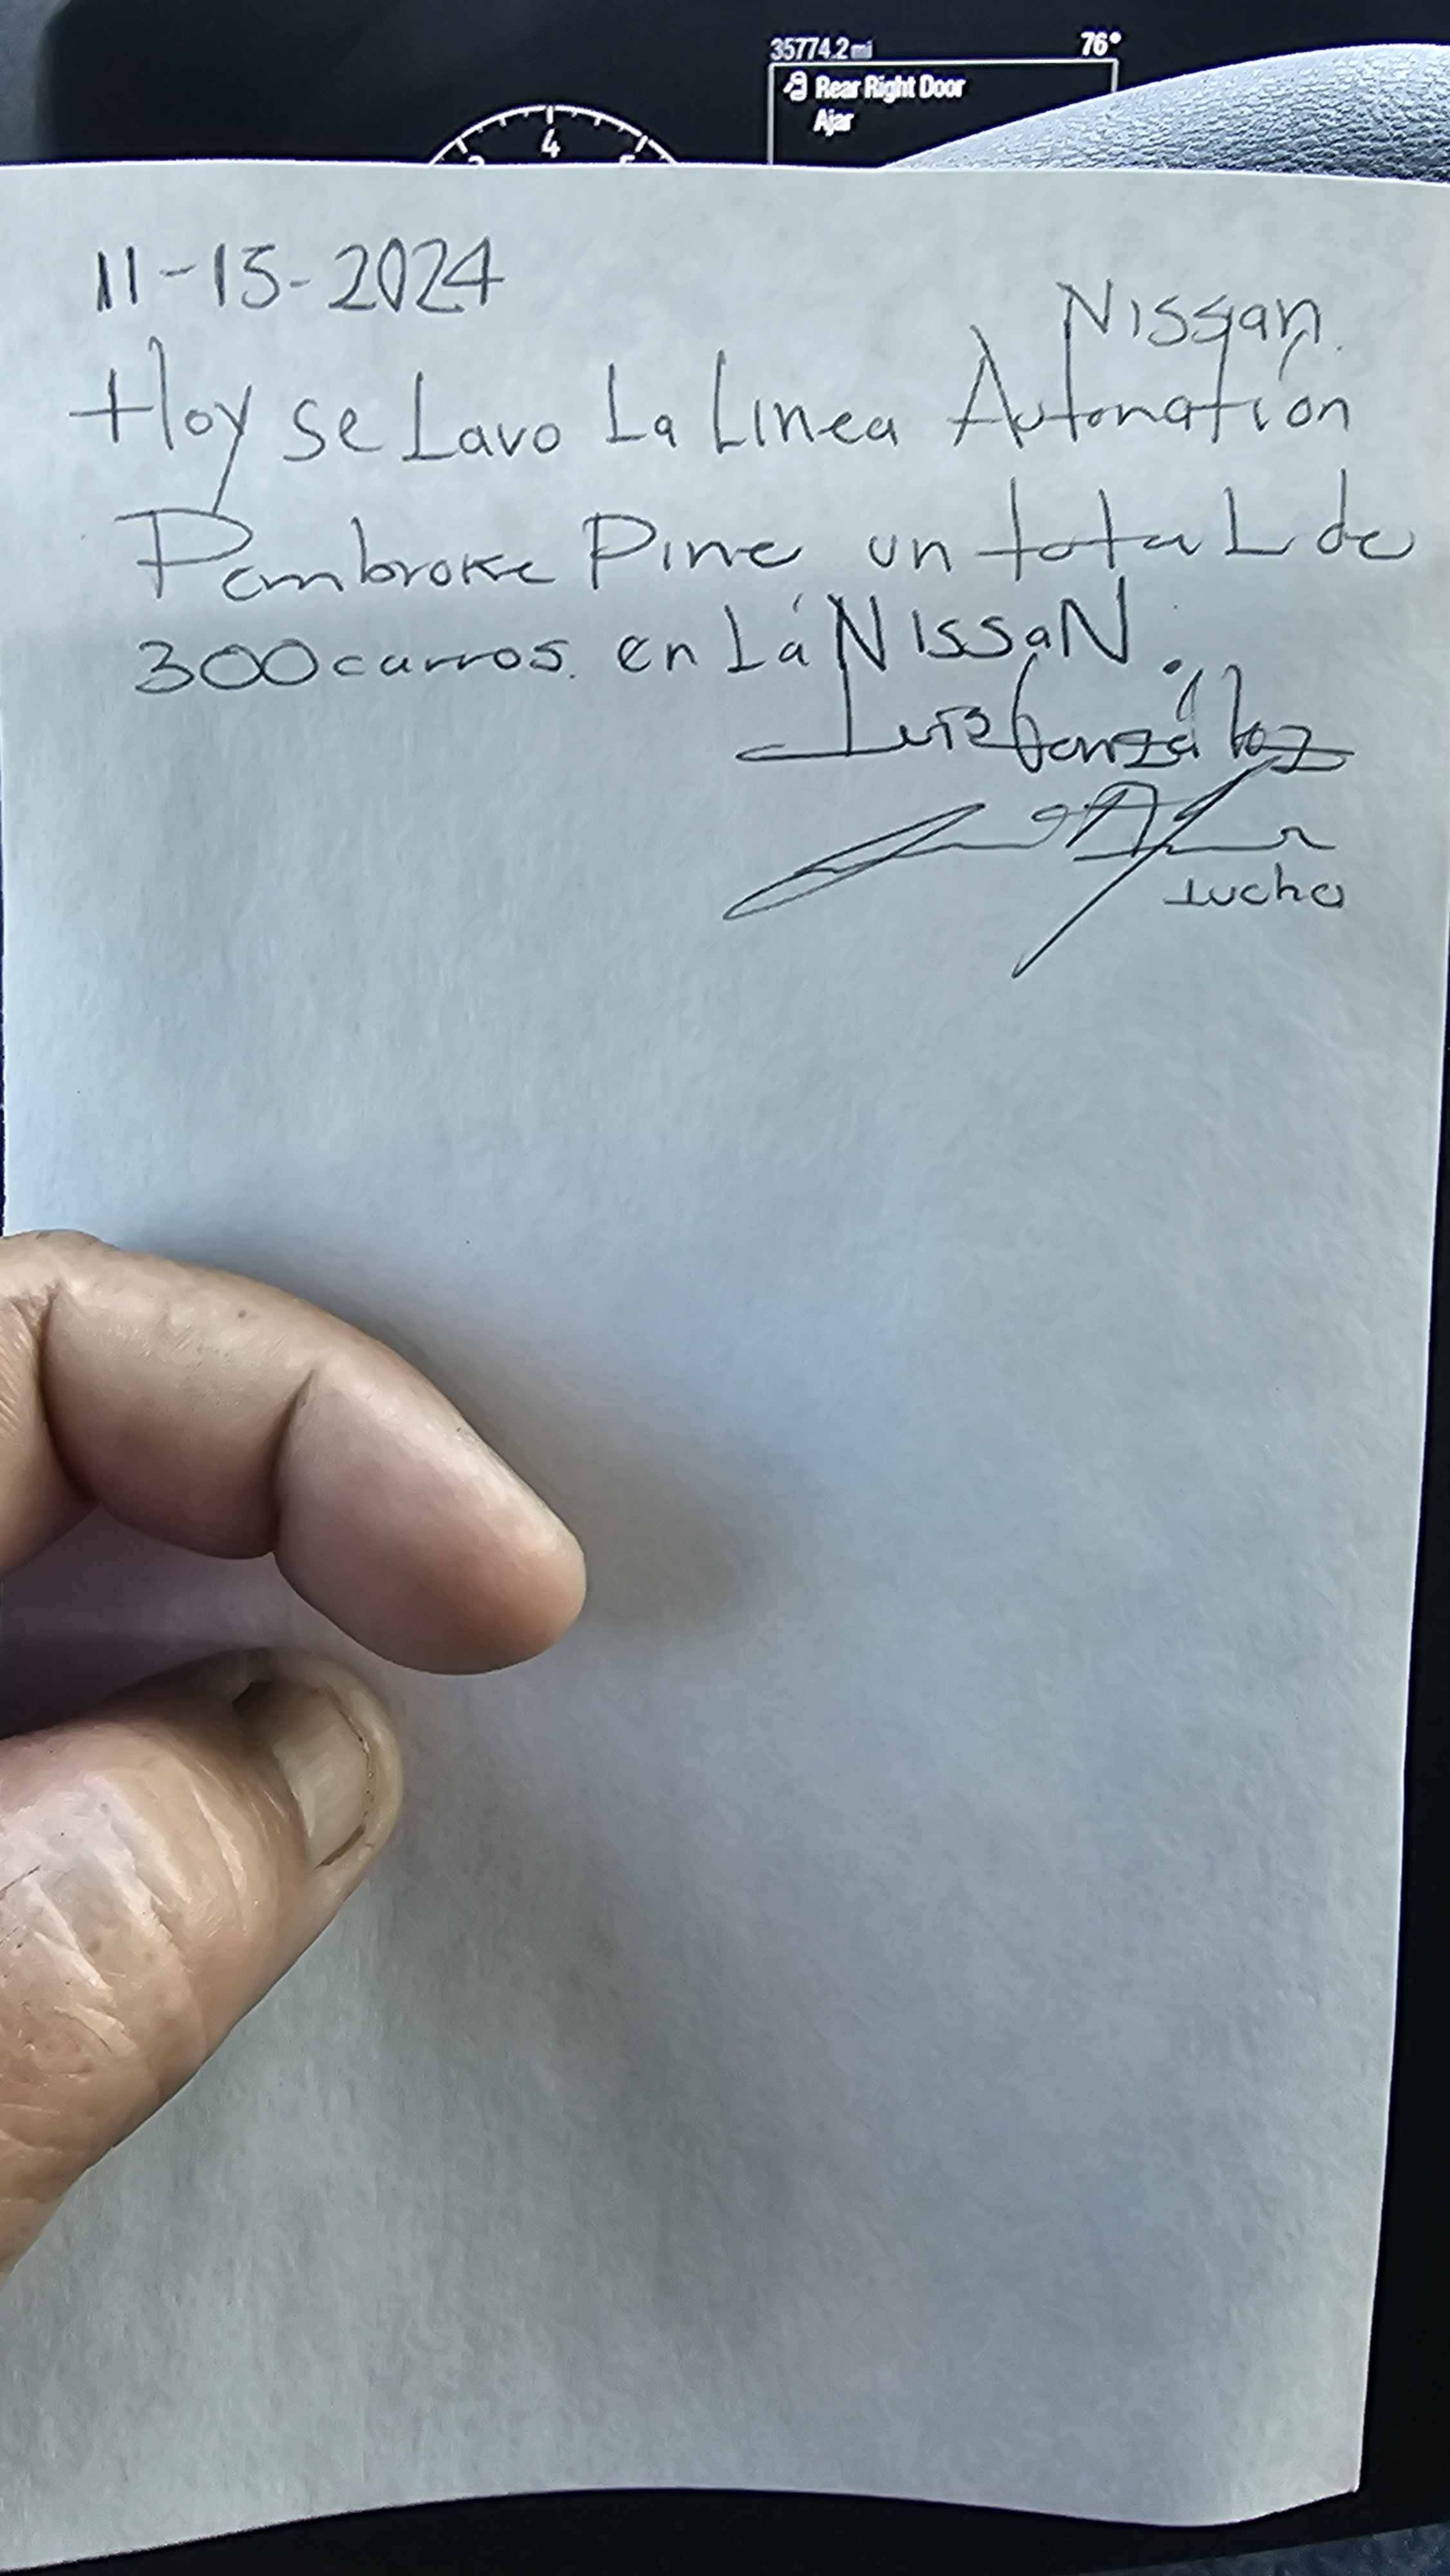 35774.2 mi 76°
Rear Right Door
Ajar
4
11-15-2024
Nissan.
Hoy se Lavo La Linea Autonation
Pembroke Pine un total de
300 carros. en La NissaN.
Luis González
Lucho